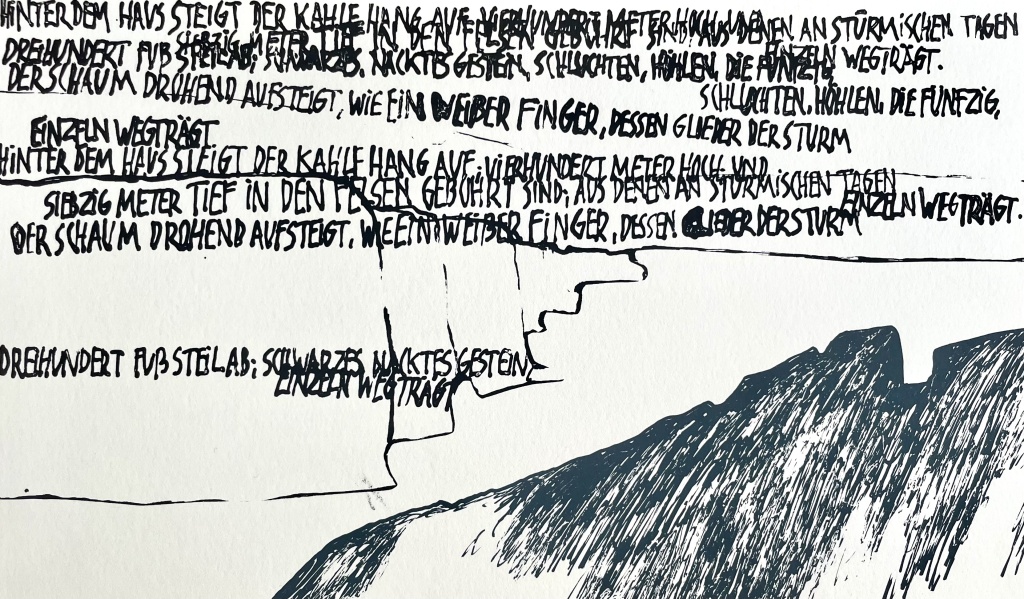 HINTER DEM HAUS STEIGT DER KAHLE HANG AUF, VIERHUNDERT METER HOCH, UND
SIEBZIG METER TIEF IN DEN FELSEN GEBOHRT SIND; AUS DENEN AN STÜRMISCHEN TAGEN
DREIHUNDERT FUẞ STEILAB; SCHWARZES, NACKTES GESTEIN, SCHLUCHTEN, HÖHLEN, DIE FÜNFZIG, EINZELN WEGTRÄGT.
DER SCHAUM DROHEND AUFSTEIGT, WIE EIN WEIẞER FINGER, DESSEN GLIEDER DER STURM
SCHLUCHTEN, HÖHLEN, DIE FÜNFZIG,
EINZELN WEGTRÄGT.
HINTER DEM HAUS STEIGT DER KAHLE HANG AUF, VIERHUNDERT METER HOCH, UND
SIEBZIG METER TIEF IN DEN FELSEN GEBOHRT SIND; AUS DENEN AN STÜRMISCHEN TAGEN
EINZELN WEGTRÄGT.
DER SCHAUM DROHEND AUFSTEIGT, WIE EIN WEIẞER FINGER, DESSEN GLIEDER DER STURM
DREIHUNDERT FUẞ STEILAB; SCHWARZES, NACKTES GESTEIN,
EINZELN WEGTRÄGT